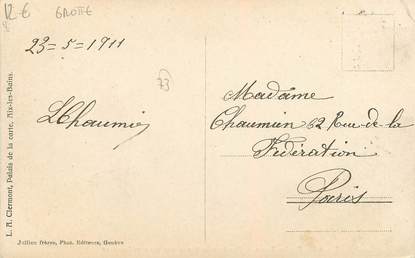 12 € GROTTE
23=5=1911
73
LChaumien
Madame
Chaumien 62 Rue de la
Fédération
Paris
L. A. Clermont, Palais de la carte, Aix-les-Bains.
Jullien frères, Phot. Editeurs, Genève